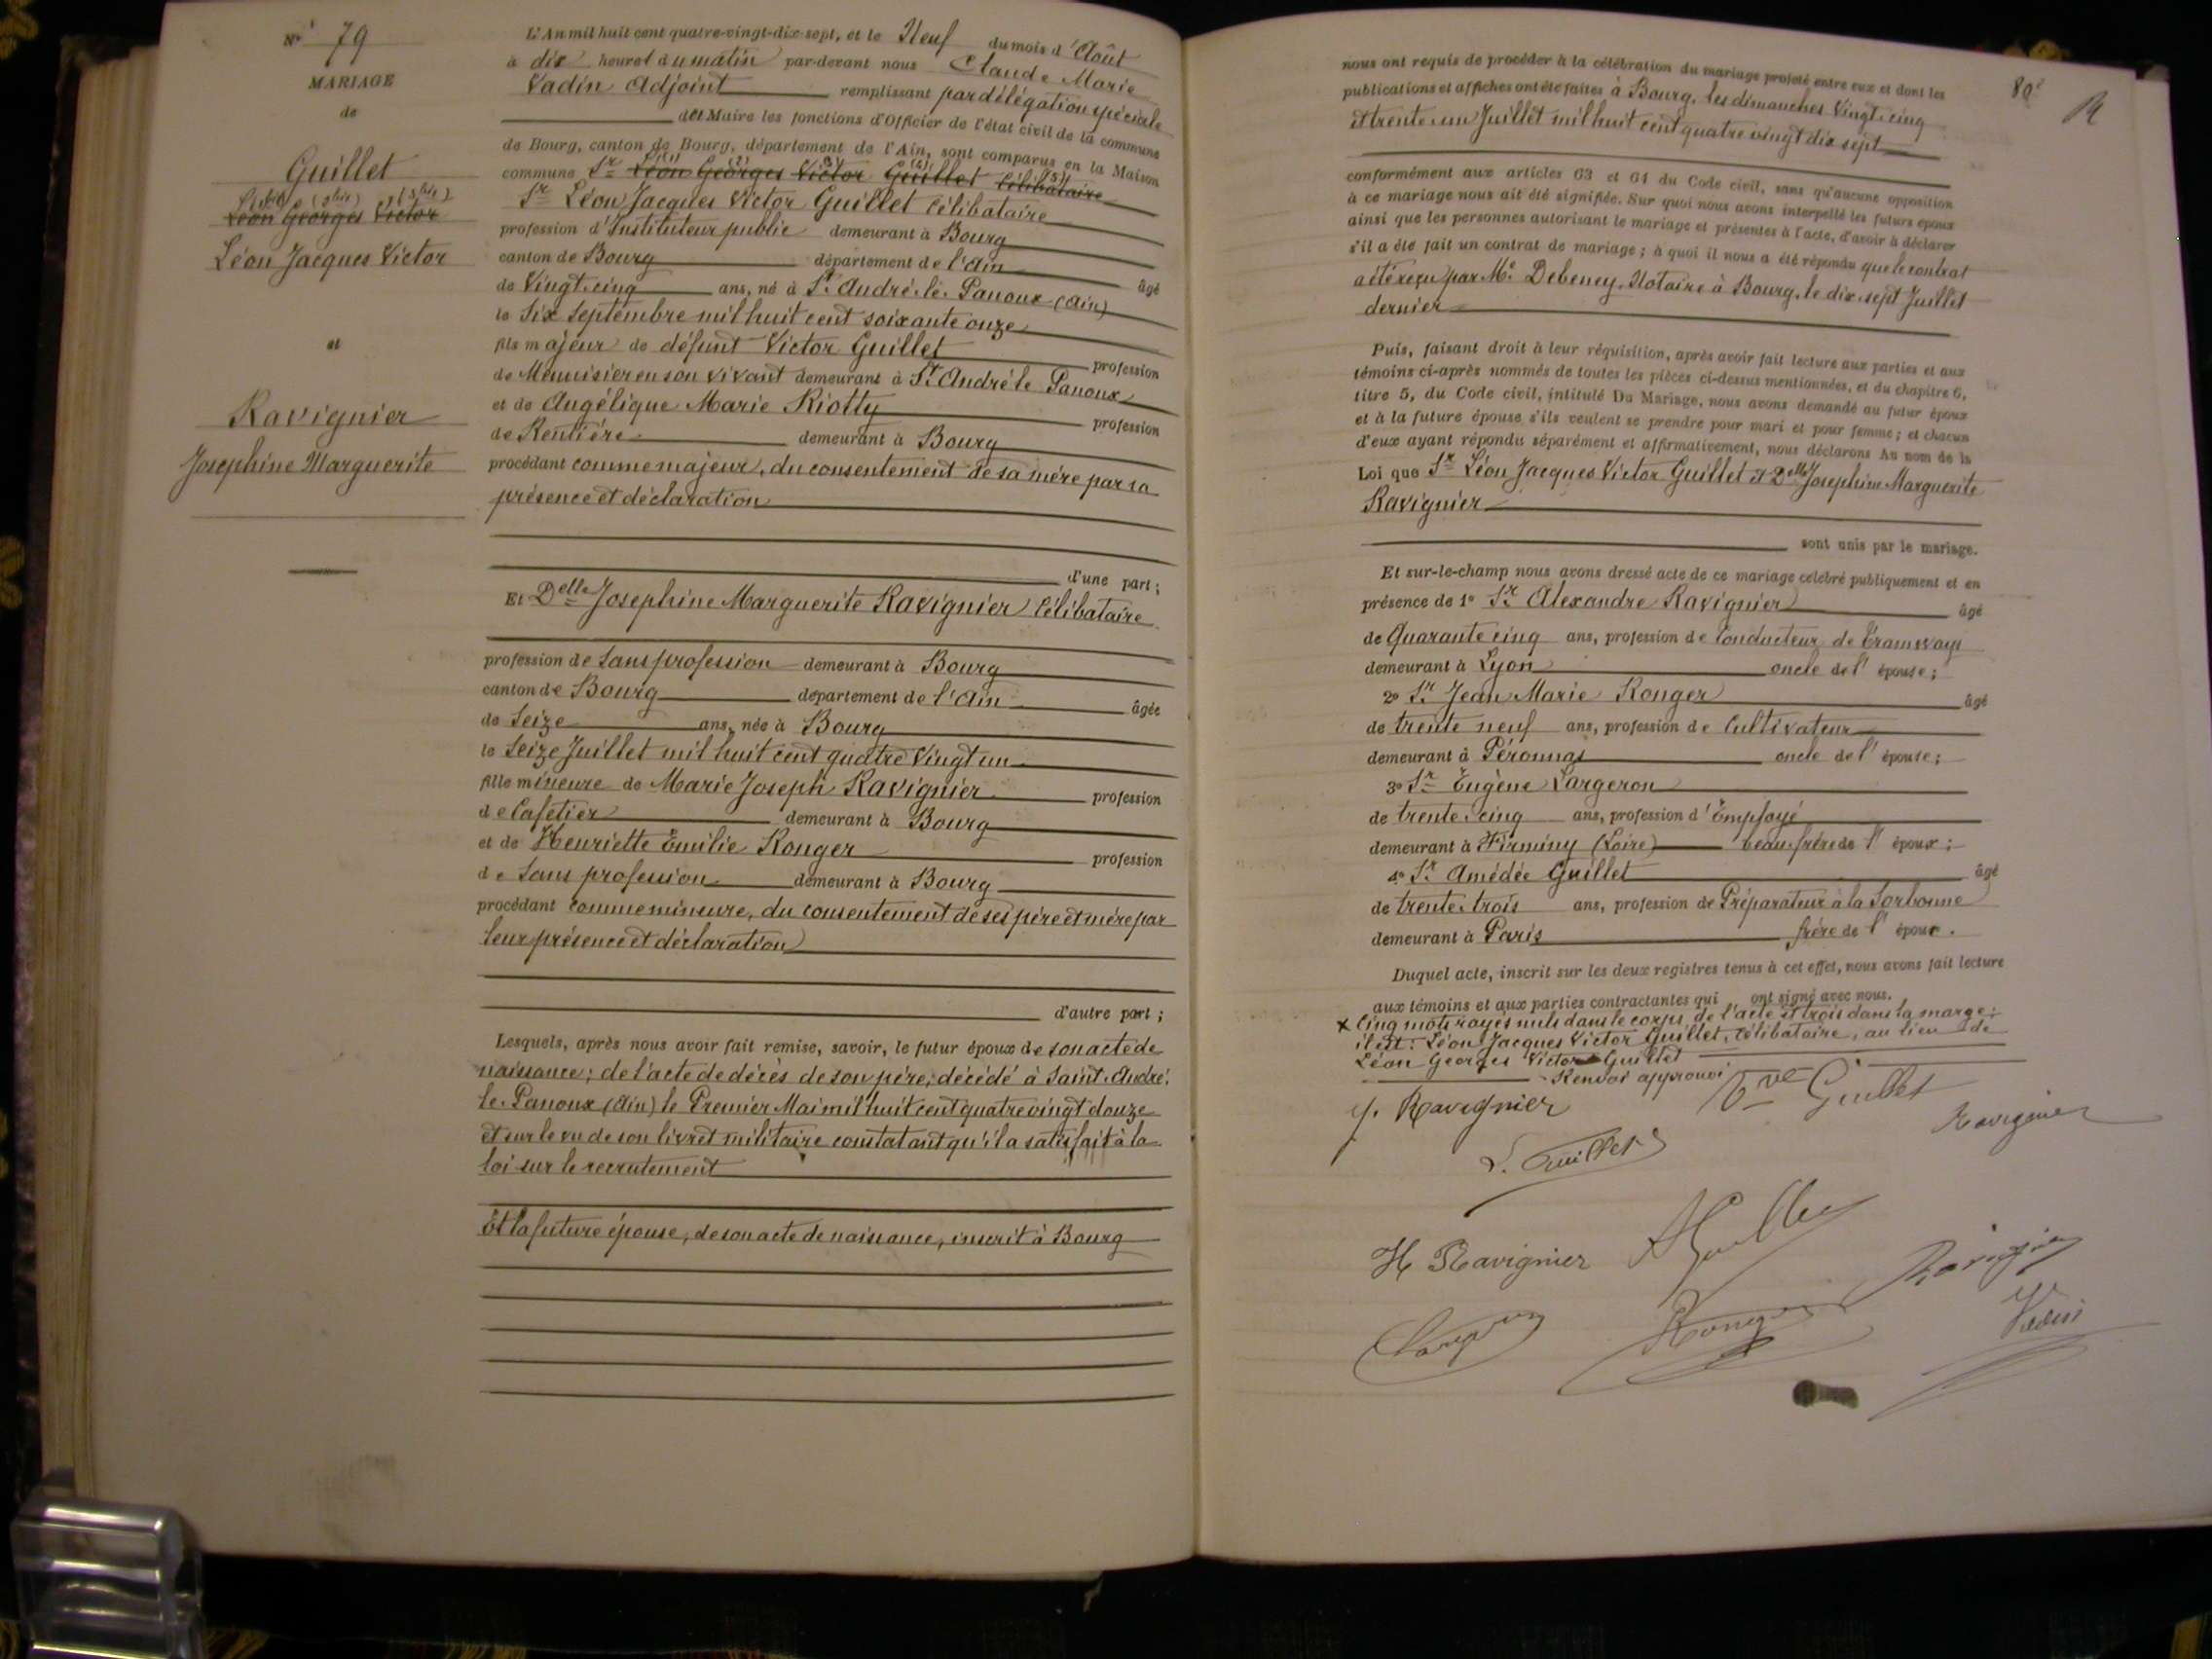 No 79
MARIAGE
de
Guillet
Léon Georges Victor
Léon Jacques Victor
et
Ravignier
Josephine Marguerite
L'An mil huit cent quatre-vingt-dix-sept, et le Neuf du mois d'Août
à dix heures du matin par-devant nous Claude Marie
Vadin Adjoint remplissant par délégation spéciale
del Maire les fonctions d'Officier de l'état civil de la commune
de Bourg, canton de Bourg, département de l'Ain, sont comparus en la Maison
commune Sr Léon (1) Georges (2) Victor (3) Guillet (4) Célibataire (5)
Sr Léon Jacques Victor Guillet Célibataire
profession d'Instituteur public demeurant à Bourg
canton de Bourg département de l'Ain âgé
de Vingt cinq ans, né à St André-le-Panoux (Ain)
le Six Septembre mil huit cent soixante onze
fils majeur de défunt Victor Guillet profession
de Menuisier en son vivant demeurant à St André le Panoux
et de Angélique Marie Riotty profession
de Rentière demeurant à Bourg
procédant comme majeur, du consentement de sa mère par sa
présence et déclaration
d'une part;
Et Delle Josephine Marguerite Ravignier Célibataire
profession de Sans profession demeurant à Bourg
canton de Bourg département de l'Ain âgée
de Seize ans, née à Bourg
le Seize Juillet mil huit cent quatre Vingt un
fille mineure de Marie Joseph Ravignier profession
de Cafetier demeurant à Bourg
et de Henriette Emilie Ronger profession
de Sans profession demeurant à Bourg
procédant comme mineure, du consentement de ses père et mère par
leur présence et déclaration
d'autre part;
Lesquels, après nous avoir fait remise, savoir, le futur époux de son acte de
naissance; de l'acte de décès de son père, décédé à Saint-André-
le-Panoux (Ain) le Premier Mai mil huit cent quatre vingt douze
et sur le vu de son livret militaire constatant qu'il a satisfait à la
loi sur le recrutement
Et la future épouse, de son acte de naissance, inscrit à Bourg
80
nous ont requis de procéder à la célébration du mariage projeté entre eux et dont les
publications et affiches ont été faites à Bourg, les dimanches Vingt-cinq
et trente-un Juillet mil huit cent quatre vingt dix sept
conformément aux articles 63 et 64 du Code civil, sans qu'aucune opposition
à ce mariage nous ait été signifiée. Sur quoi nous avons interpellé les futurs époux
ainsi que les personnes autorisant le mariage et présentes à l'acte, d'avoir à déclarer
s'il a été fait un contrat de mariage; à quoi il nous a été répondu que le contrat
a été reçu par Me Debeney, Notaire à Bourg, le dix-sept Juillet
dernier
Puis, faisant droit à leur réquisition, après avoir fait lecture aux parties et aux
témoins ci-après nommés de toutes les pièces ci-dessus mentionnées, et du chapitre 6,
titre 5, du Code civil, intitulé Du Mariage, nous avons demandé au futur époux
et à la future épouse s'ils veulent se prendre pour mari et pour femme; et chacun
d'eux ayant répondu séparément et affirmativement, nous déclarons Au nom de la
Loi que Sr Léon Jacques Victor Guillet et Delle Josephine Marguerite
Ravignier
sont unis par le mariage.
Et sur-le-champ nous avons dressé acte de ce mariage célébré publiquement et en
présence de 1o Sr Alexandre Ravignier âgé
de Quarante cinq ans, profession de Conducteur de Tramways
demeurant à Lyon oncle de l'épouse;
2o Sr Jean Marie Ronger âgé
de trente neuf ans, profession de Cultivateur
demeurant à Péronnas oncle de l'épouse;
3o Sr Eugène Largeron
de trente-cinq ans, profession d'Employé
demeurant à Firminy (Loire) beau-frère de l'époux;
4o Sr Amédée Guillet âgé
de trente-trois ans, profession de Préparateur à la Sorbonne
demeurant à Paris frère de l'époux.
Duquel acte, inscrit sur les deux registres tenus à cet effet, nous avons fait lecture
aux témoins et aux parties contractantes qui ont signé avec nous.
x Cinq mots rayés nuls dans le corps de l'acte et trois dans la marge:
il est: Léon Jacques Victor Guillet, Célibataire, au lieu de
Léon Georges Victor Guillet
Renvoi approuvé
J. Ravignier
Vve Guillet
Ravignier
L. Guillet
H Ravignier
AGuillet
Ravignier
Largeron
Ronger
Vadin